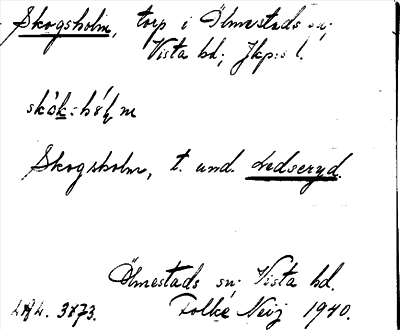 Skogsholm, torp i Ölmestads sn;
Vista hd; Jkp:s l.
Skogsholm, t. und. Ledseryd.
Ölmestads sn; Vista hd.
3873. Folke Neij 1940.